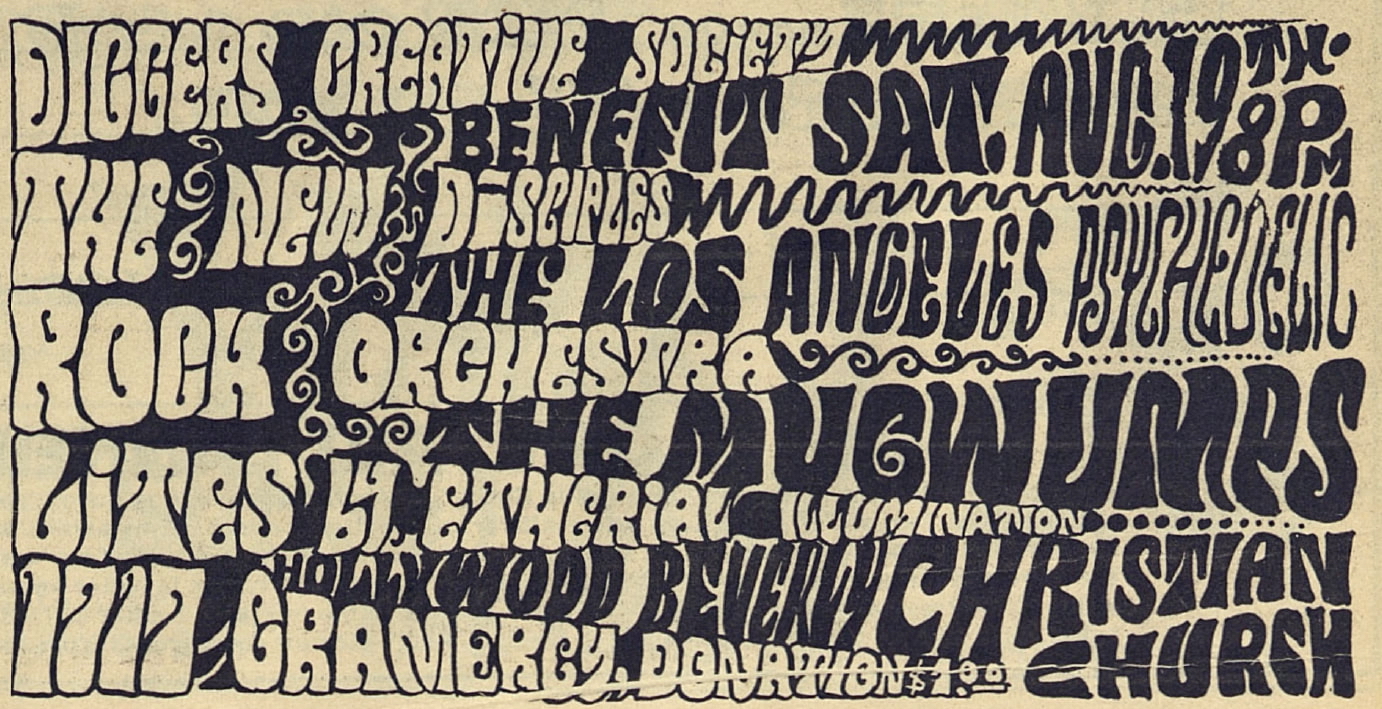 DIGGERS CREATIVE SOCIETY
BENEFIT SAT. AUG. 19TH. 8PM
THE NEW DISCIPLES
THE LOS ANGELES PSYCHEDELIC
ROCK ORCHESTRA
THE MUGWUMPS
LiTES by ETHERiAL ILLUMINATION
HOLLYWOOD BEVERLY CHRISTIAN CHURCH
1717 GRAMERCY, DONATION $1.00